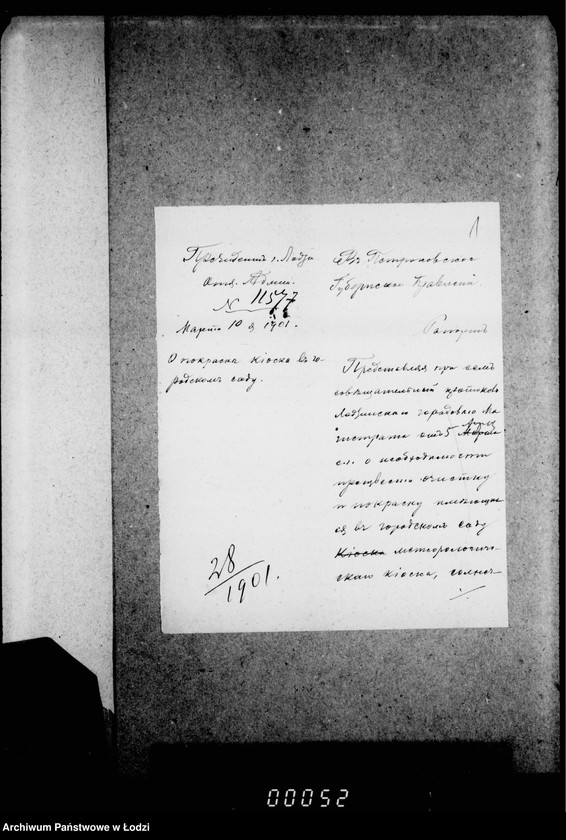 1
Президентъ г. Лодзи
Отд. Админ.
N 11577
Марта 10 д 1901.
О покраскѣ кіоска въ го-
родскомъ саду.
28/1901.
Въ Петроковское
Губернское Правленіе.
Рапортъ
Представляя при семъ
совѣщательный протоколъ
Лодзинскаго городового Ма-
гистрата отъ 5
с.г. о необходимости
произвести очистку
и покраску имѣющаго-
ся въ городскомъ саду
Кіоска метеорологиче-
скаго кіоска, солнеч-
./.
00052
Archiwum Państwowe w Łodzi